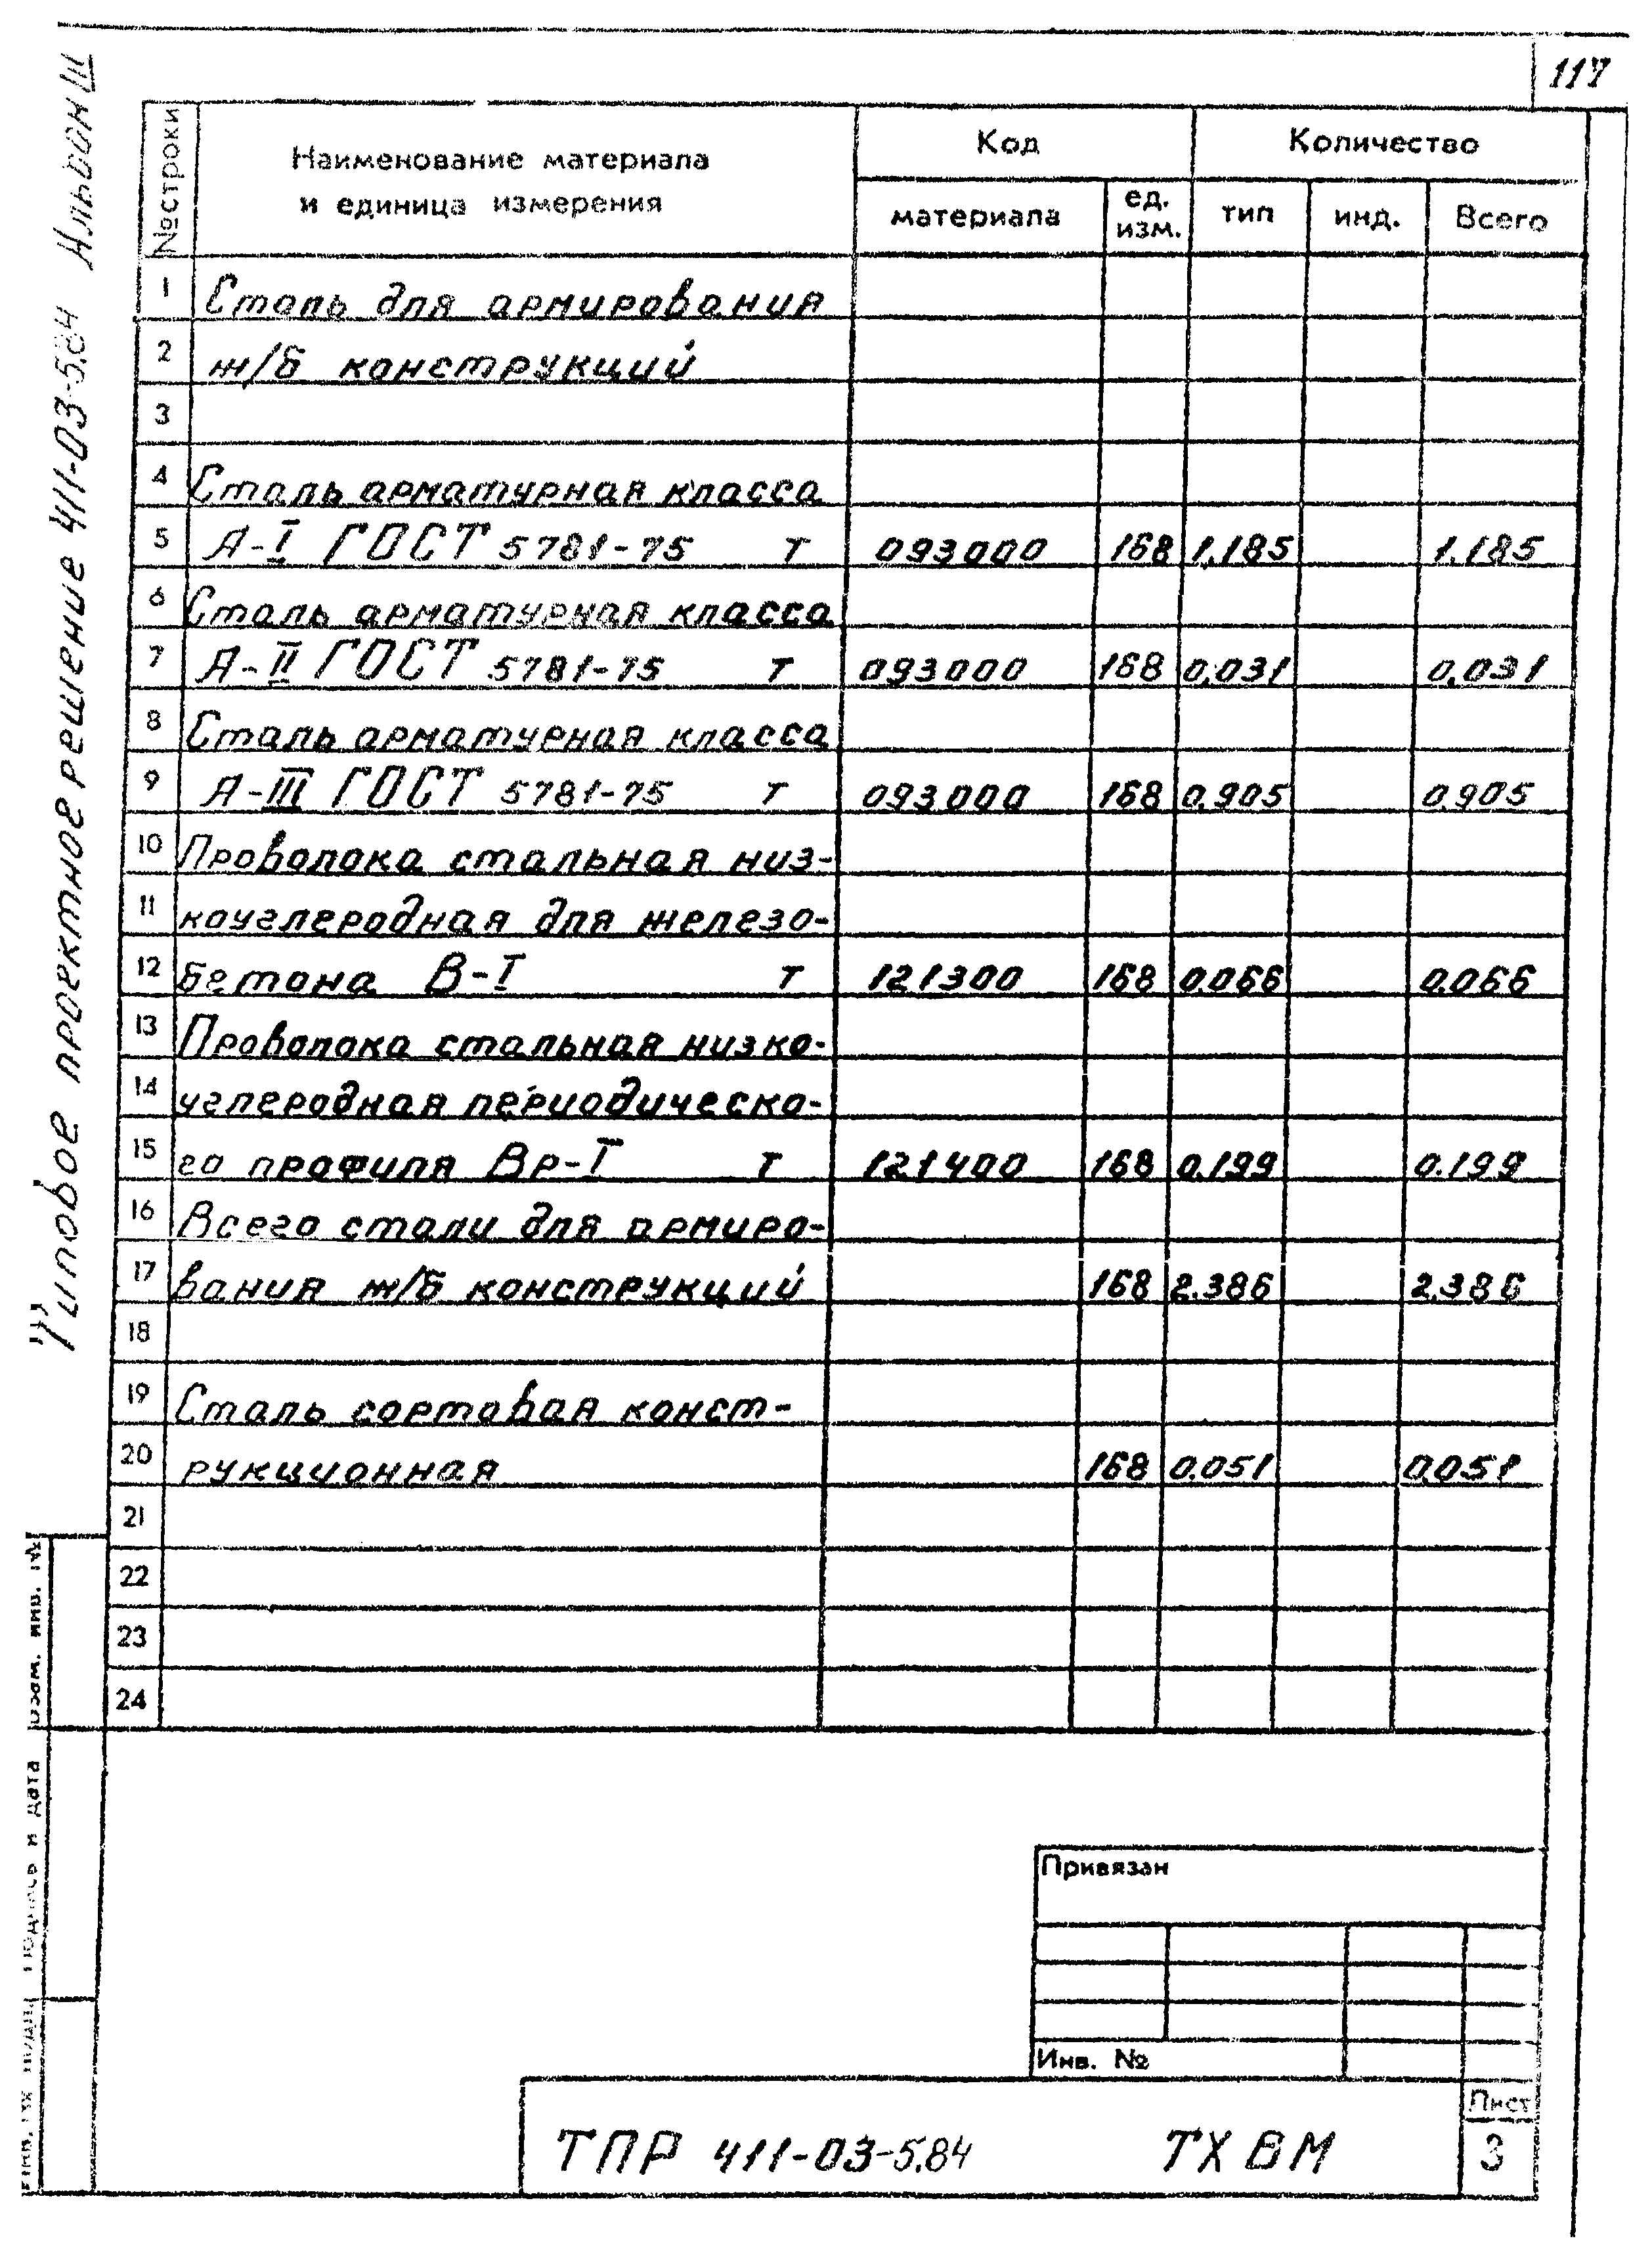 117
Типовое проектное решение 411-03-5.84 Альбом III
№ строки
Наименование материала
и единица измерения
Код
Количество
материала
ед.
изм.
тип
инд.
Всего
1 Сталь для армирования
2 ж/б конструкций
3
4 Сталь арматурная класса
5 А-I ГОСТ 5781-75 т 093000 168 1.185 1.185
6 Сталь арматурная класса
7 А-II ГОСТ 5781-75 т 093000 168 0.031 0.031
8 Сталь арматурная класса
9 А-III ГОСТ 5781-75 т 093000 168 0.905 0.905
10 Проволока стальная низ-
11 коуглеродная для железо-
12 бетона В-I т 121300 168 0.066 0.066
13 Проволока стальная низко-
14 углеродная периодическо-
15 го профиля Вр-I т 121400 168 0.199 0.199
16 Всего стали для армиро-
17 вания ж/б конструкций 168 2.386 2.386
18
19 Сталь сортовая конст-
20 рукционная 168 0.051 0.051
21
22
23
24
Взам. инв. №
Подпись и дата
Привязан
Инв. №
ТПР 411-03-5.84 ТХ ВМ
Лист
3